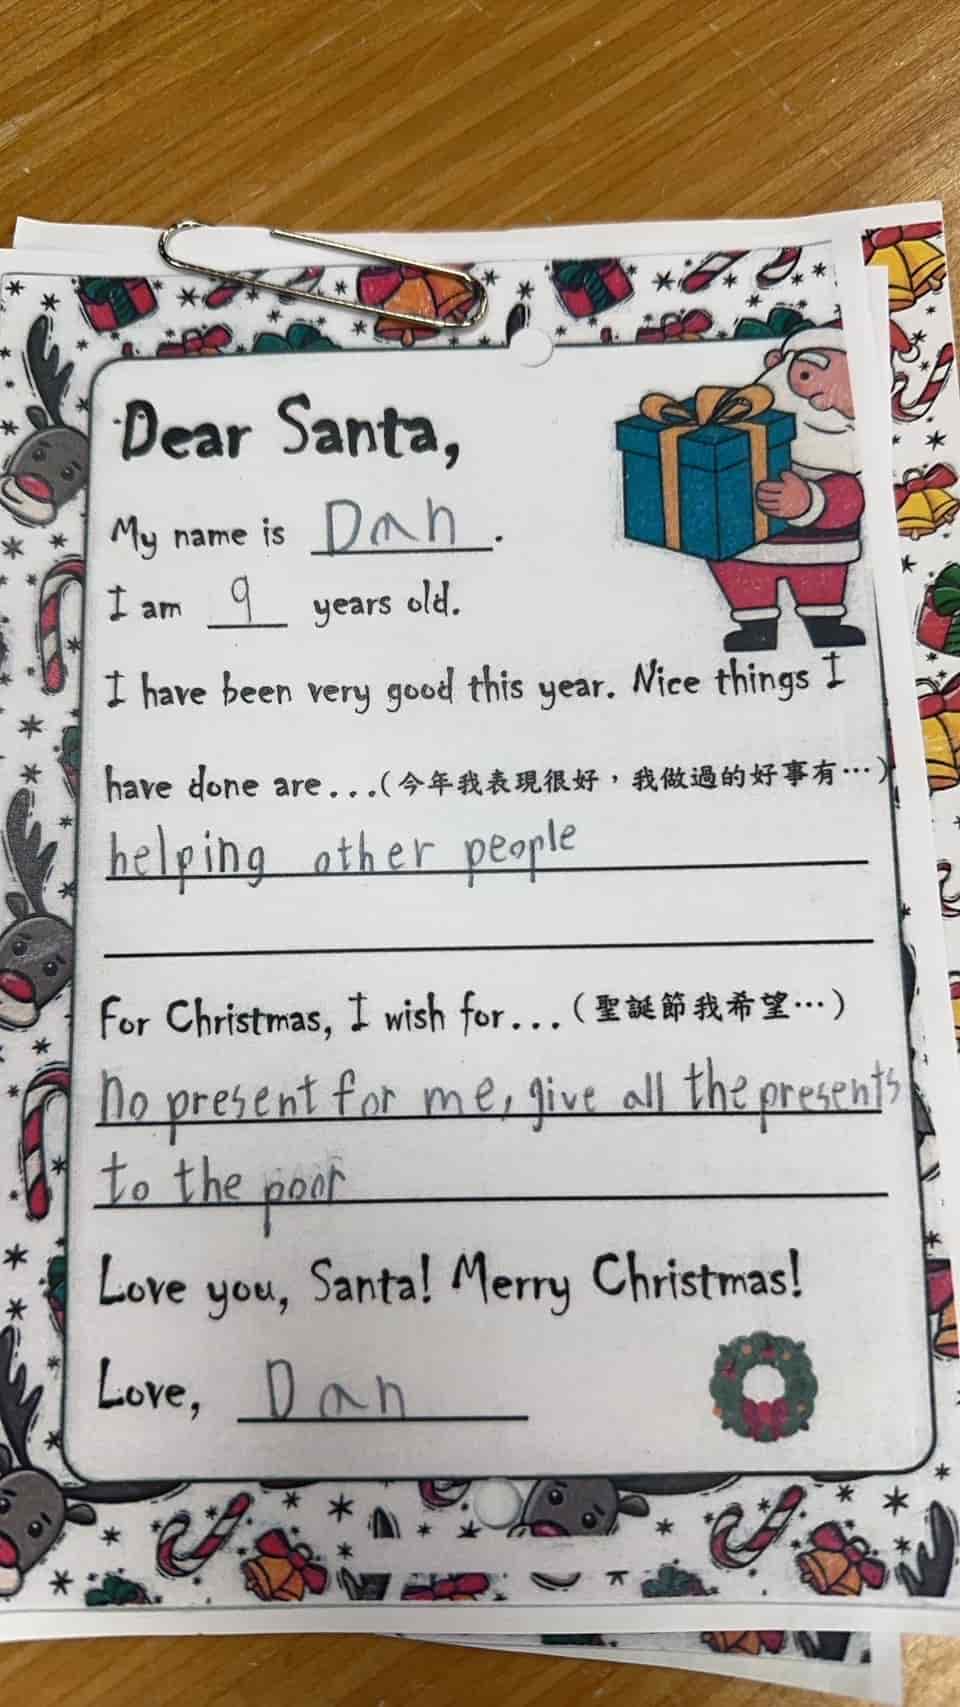 Dear Santa,
My name is Dan.
I am 9 years old.
I have been very good this year. Nice things I
have done are...(今年我表現很好，我做過的好事有…)
helping other people
For Christmas, I wish for...(聖誕節我希望…)
no present for me, give all the presents
to the poor
Love you, Santa! Merry Christmas!
Love, Dan